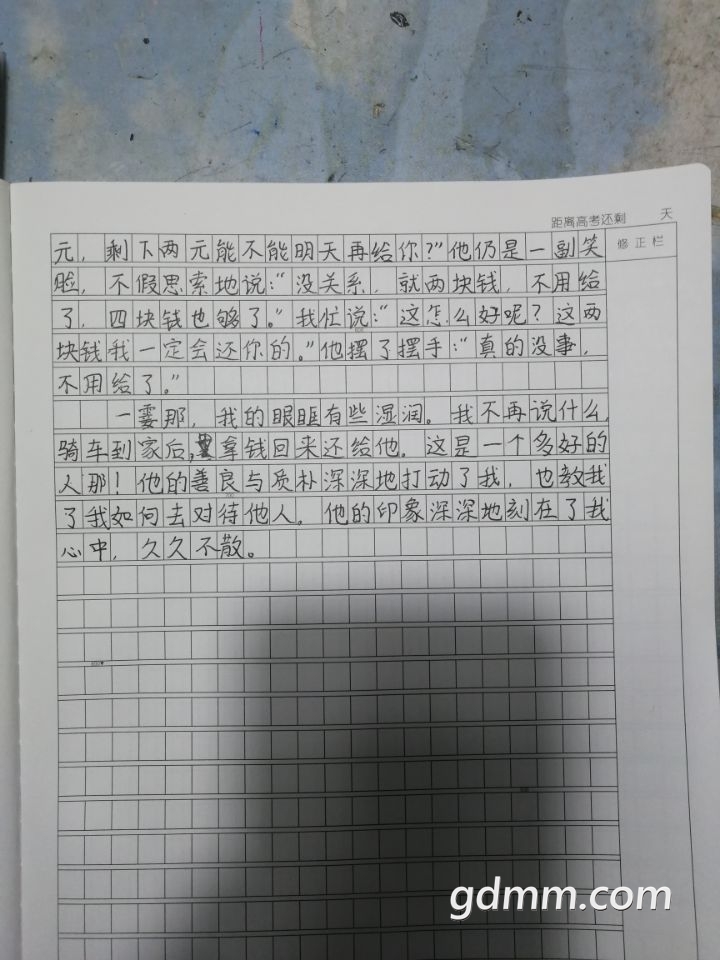 距离高考还剩 天
修正栏
元，剩下两元能不能明天再给你？”他仍是一副笑
脸，不假思索地说：“没关系，就两块钱，不用给
了，四块钱也够了。”我忙说：“这怎么好呢？这两
块钱我一定会还你的。”他摆了摆手：“真的没事，
不用给了。”
一霎那，我的眼眶有些湿润。我不再说什么，
骑车到家后，拿钱回来还给他。这是一个多好的
人那！他的善良与质朴深深地打动了我，也教我
了我如何去对待他人。他的印象深深地刻在了我
心中，久久不散。
gdmm.com